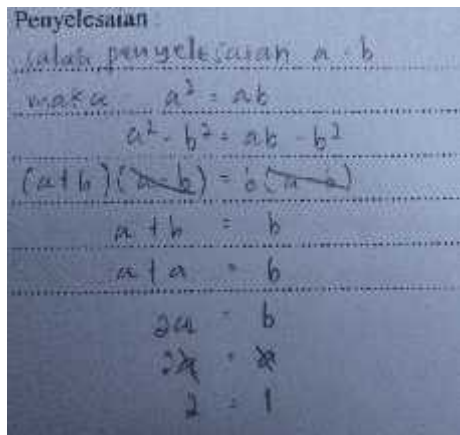 Penyelesaian :
salah penyelesaian a = b
maka a² = ab
a² - b² = ab - b²
(a+b)(a-b) = b(a-b)
a + b = b
a + a = b
2a = b
2a = a
2 = 1